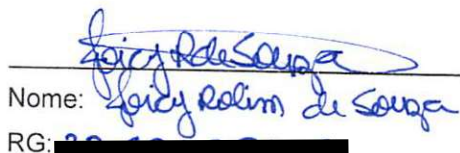 Joicy R de Souza
Nome: Joicy Rolim de Souza
RG: